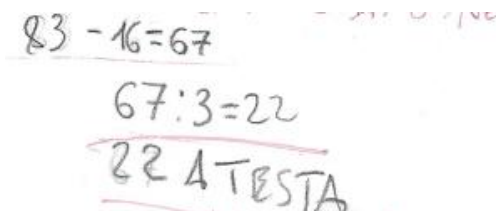 83 - 16 = 67
67 : 3 = 22
22 A TESTA